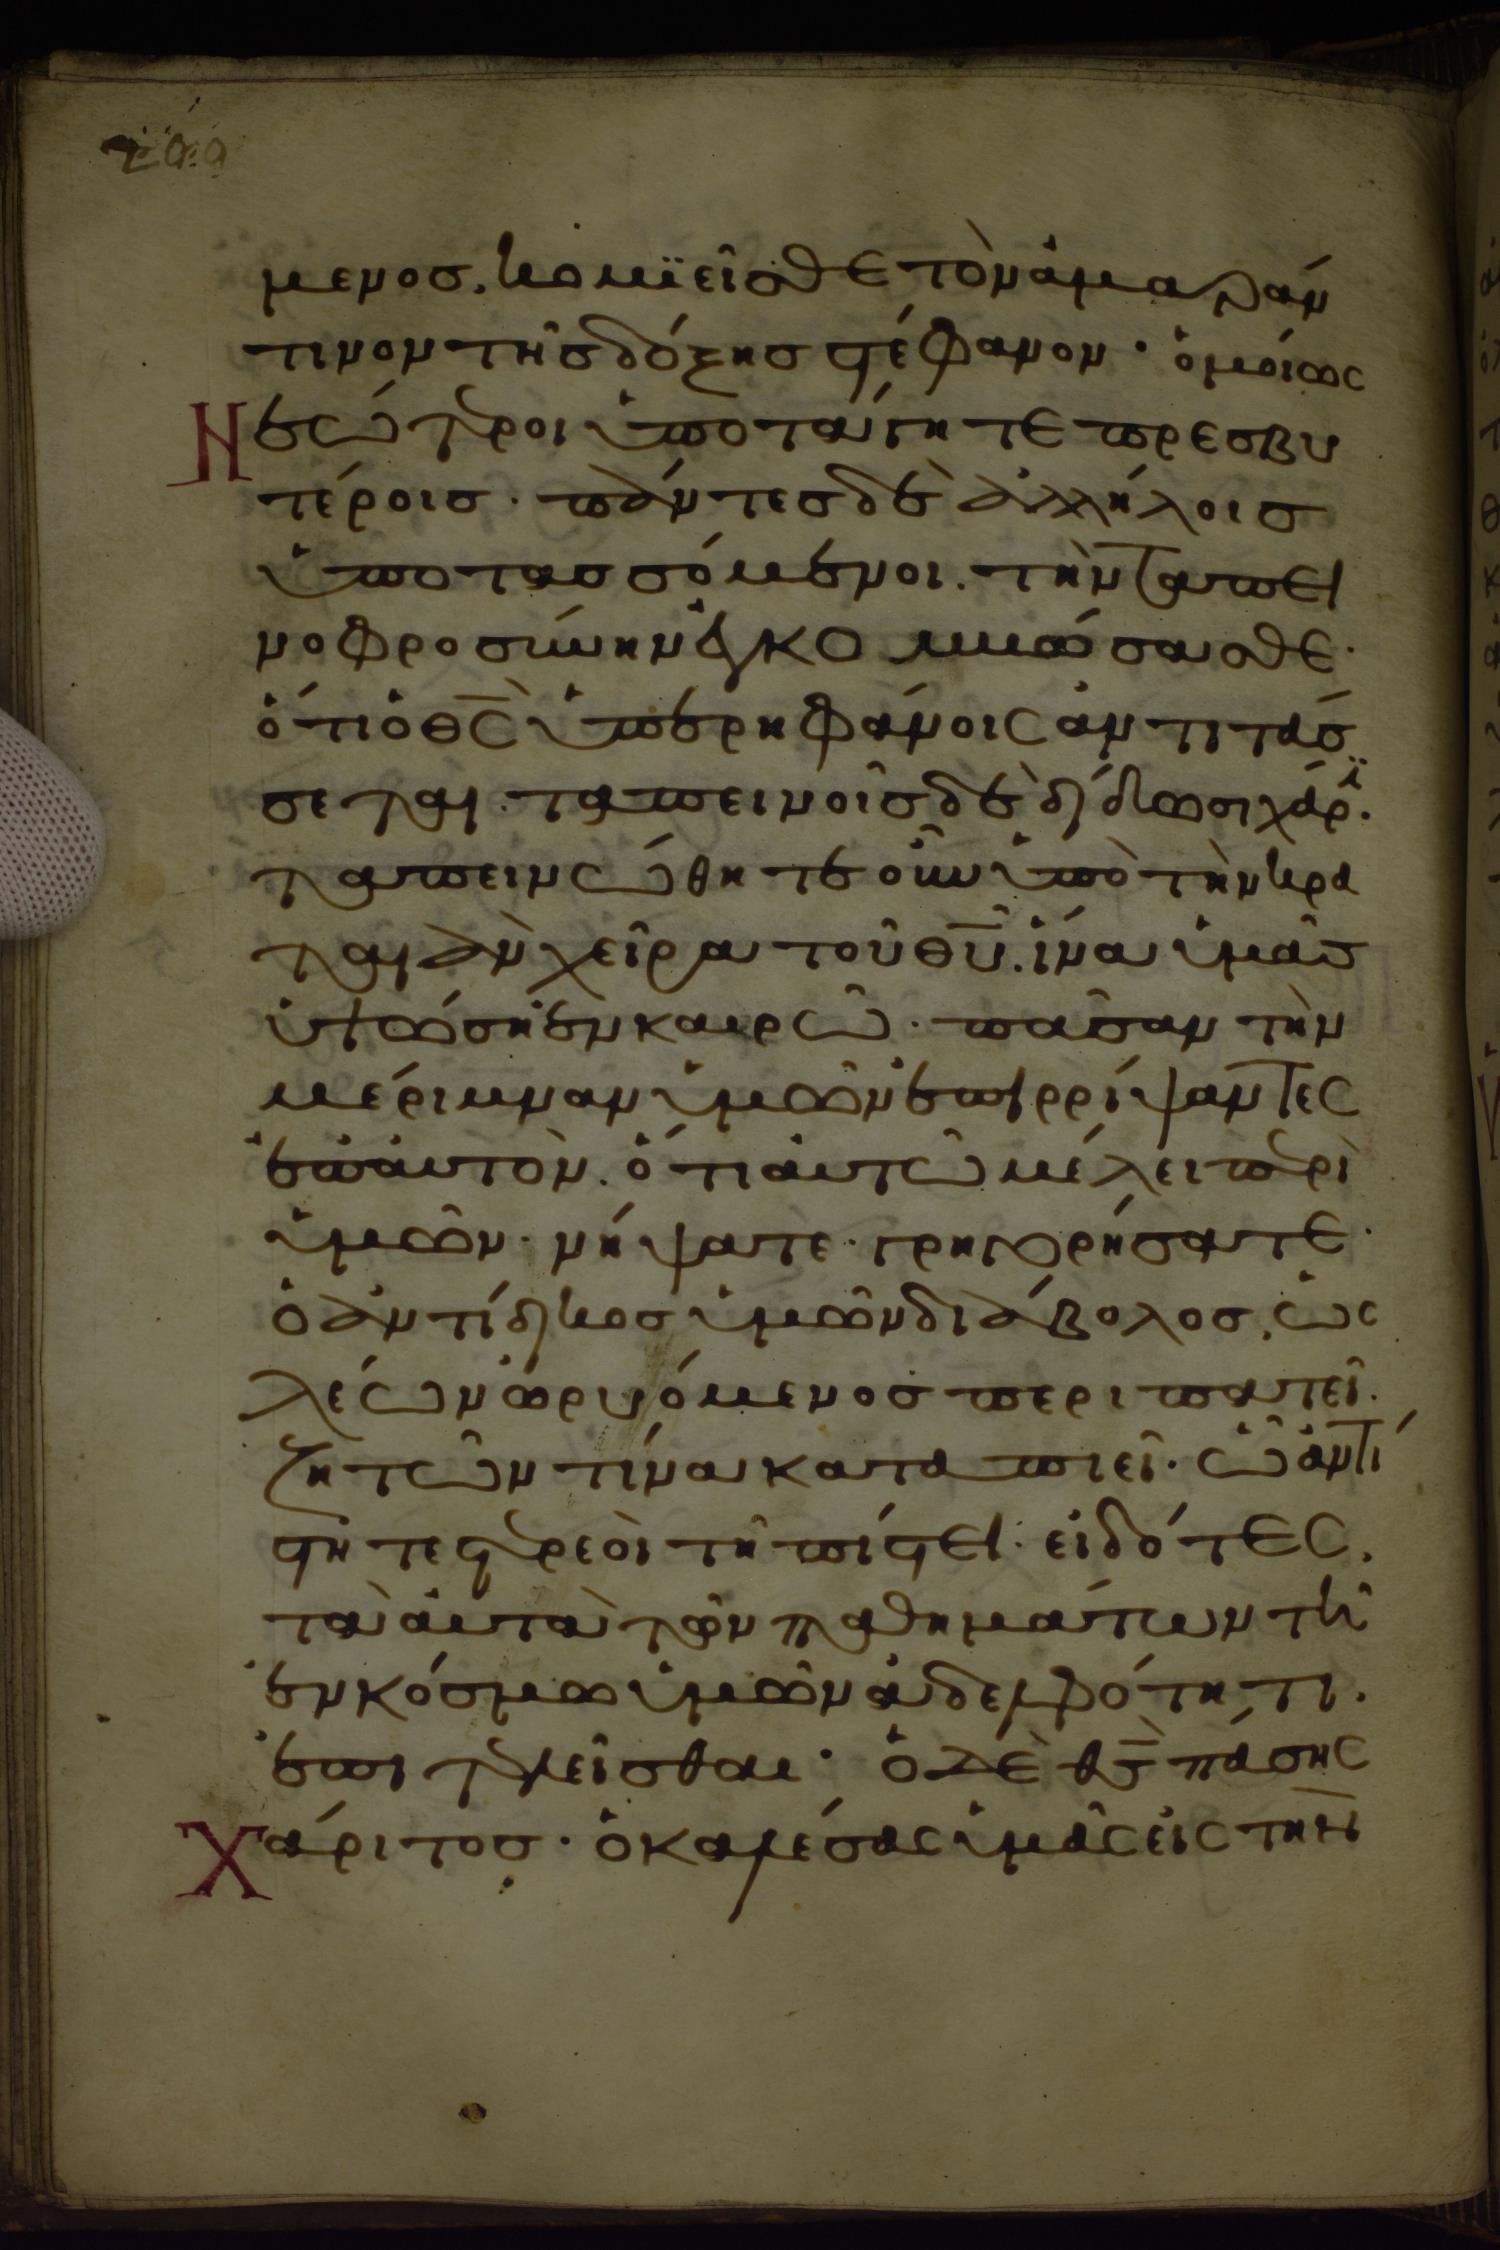 μενος. κομιεῖσθε τὸν ἀμαράν
τινον τῆς δόξης στέφανον· ὁμοίως
Νεώτεροι ὑποτάγητε πρεσβυ
τέροις· πάντες δὲ ἀλλήλοις
ὑποτασσόμενοι. τὴν ταπει
νοφροσύνην ἐγκομβώσασθε·
ὅτι ὁ θς ὑπερηφάνοις ἀντιτάσ
σεται· ταπεινοῖς δὲ δίδωσι χάρι·
ταπεινώθητε οὖν ὑπὸ τὴν κρα
ταιὰν χεῖρα τοῦ θυ. ἵνα ὑμᾶς
ὑψώση ἐν καιρῶ· πᾶσαν τὴν
μέριμναν ὑμῶν ἐπιρρίψαντες
ἐπ αὐτὸν. ὅτι αὐτῶ μέλει περὶ
ὑμῶν· νήψατε· γρηγορήσατε·
ὁ ἀντίδικος ὑμῶν διάβολος, ὡς
λέων ὠρυόμενος περιπατεῖ.
ζητῶν τίνα καταπιεῖ· ὧ ἀντί
στητε στερεοὶ τῆ πίστει· εἰδότες,
τὰ αὐτὰ τῶν παθημάτων τῆ
ἐν κόσμω ὑμῶν ἀδελφότητι.
ἐπιτελεῖσθαι· ὁ δὲ θς πάσης
Χάριτος· ὁ καλέσας ὑμᾶς εἰς τὴν